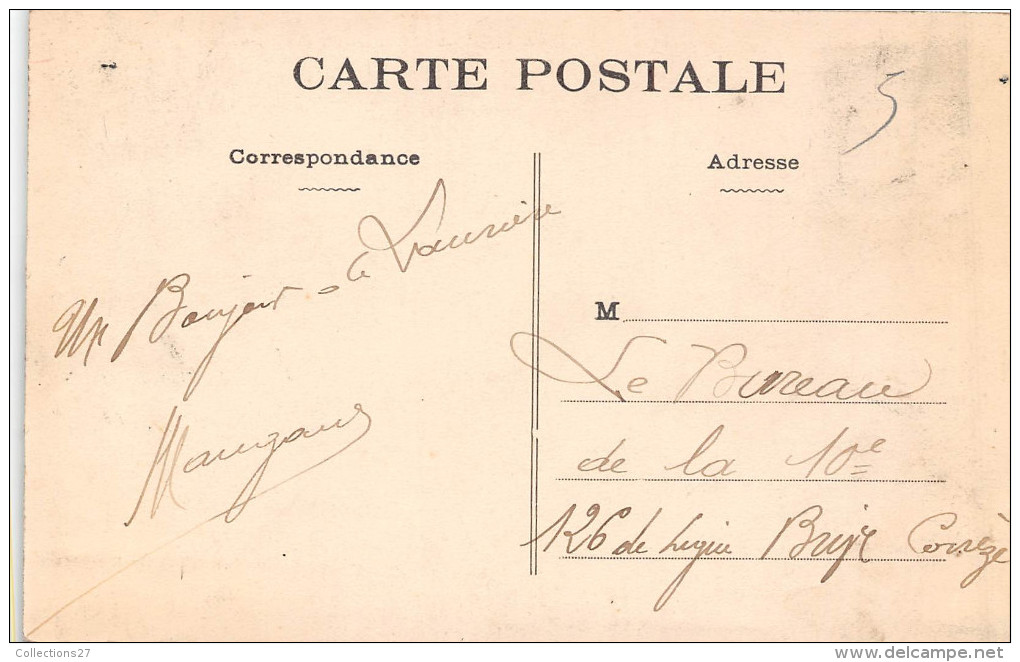 CARTE POSTALE
5
Correspondance
Adresse
Un Bonjour de Laurière
M
Le Bureau
de la 10e
126 de Ligne Brive Corrèze
Collections27
delcampe.net